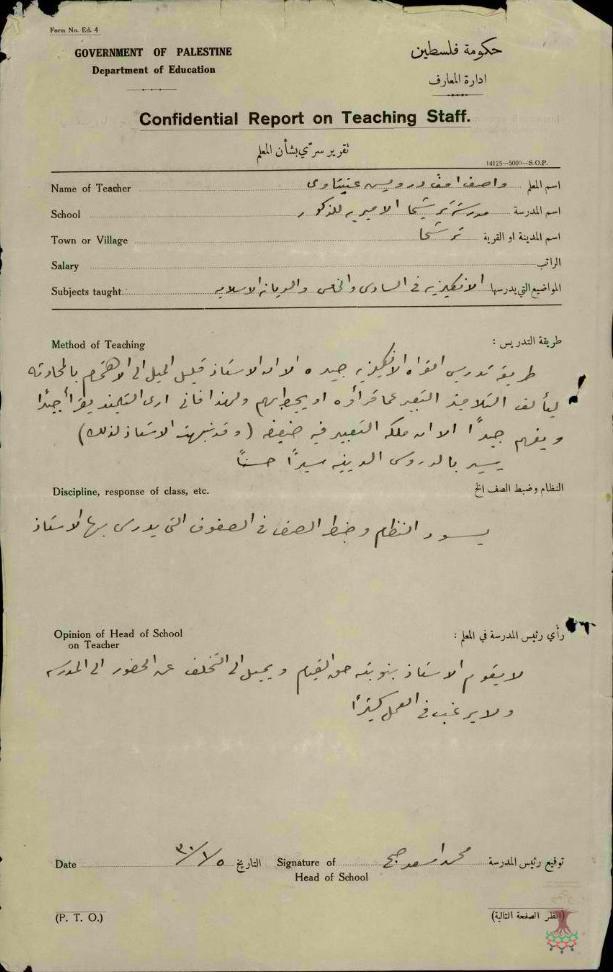 Form No. Ed. 4
GOVERNMENT OF PALESTINE
Department of Education
حكومة فلسطين
ادارة المعارف
Confidential Report on Teaching Staff.
تقرير سرّي بشأن المعلم
14125—5000—S.O.P.
Name of Teacher واصف درويش عنبتاوي اسم المعلم
School مدرسة ترشيحا الاميرية للذكور اسم المدرسة
Town or Village ترشيحا اسم المدينة او القرية
Salary الراتب
Subjects taught الانكليزية في السادس والخامس والديانة الاسلامية المواضيع التي يدرسها
Method of Teaching طريقة التدريس :
طريقة تدريس القراءة الانكليزية جيدة الا ان الاستاذ قليل الميل الى الاهتمام بالمحادثة
ليألف التلاميذ التعبير عما قرأوه او يحيط بهم ولهذا فاني ارى التلميذ يقرأ جيدًا
ويفهم جيدًا الا ان ملكة التعبير فيه ضعيفة (وقد نبهت الاستاذ لذلك)
يسير بالدروس الدينية سيرًا حسنًا
Discipline, response of class, etc. النظام وضبط الصف الخ
يسود النظام وضبط الصف في الصفوف التي يدرس بها الاستاذ
Opinion of Head of School
on Teacher
رأي رئيس المدرسة في المعلم :
لا يقوم الاستاذ بنوبته حق القيام ويميل الى التخلف عن الحضور الى المدرسة
ولا يرغب في العمل كثيرًا
Date ٣٠/١/٥ التاريخ Signature of محمد اسعد توقيع رئيس المدرسة
Head of School
(P. T. O.)
(انظر الصفحة التالية)